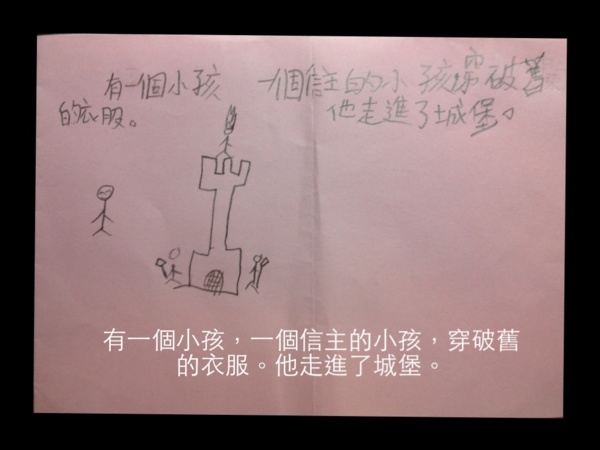 有一個小孩 一個信主的小孩穿破舊
的衣服。 他走進了城堡。
有一個小孩，一個信主的小孩，穿破舊
的衣服。他走進了城堡。